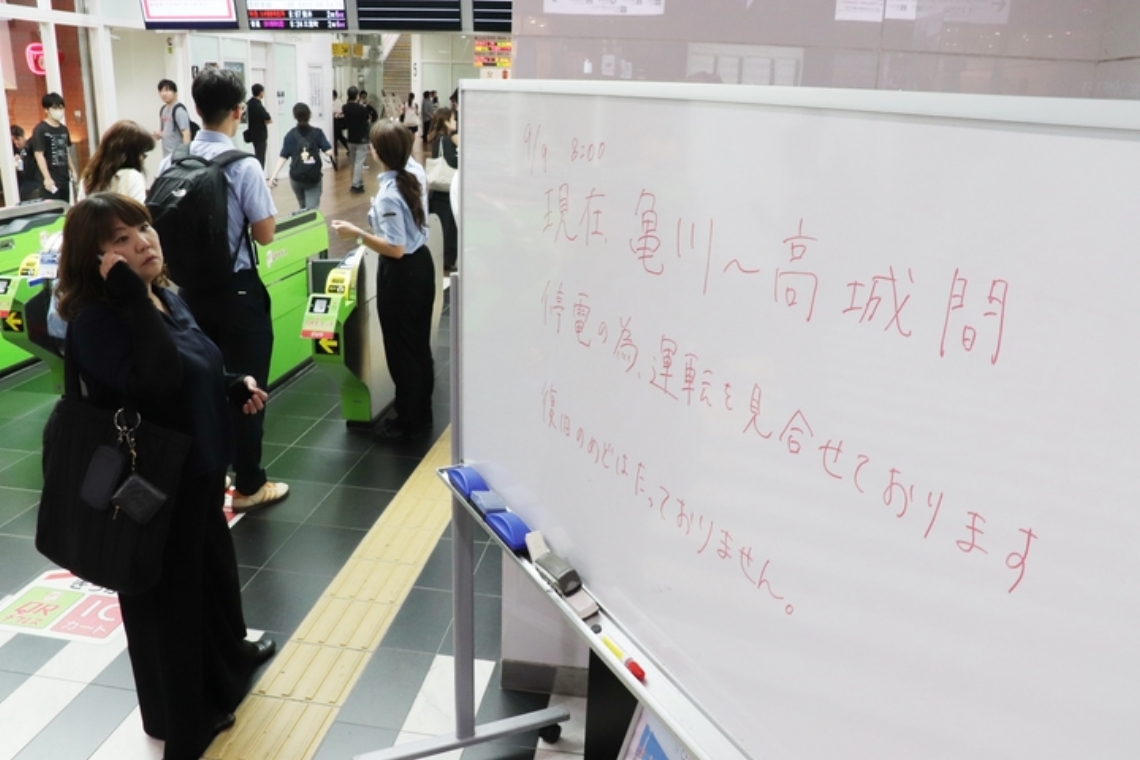 9/9 8:00
現在 亀川～高城間
停電の為、運転を見合せております
復旧のめどはたっておりません。
QR
IC
カード